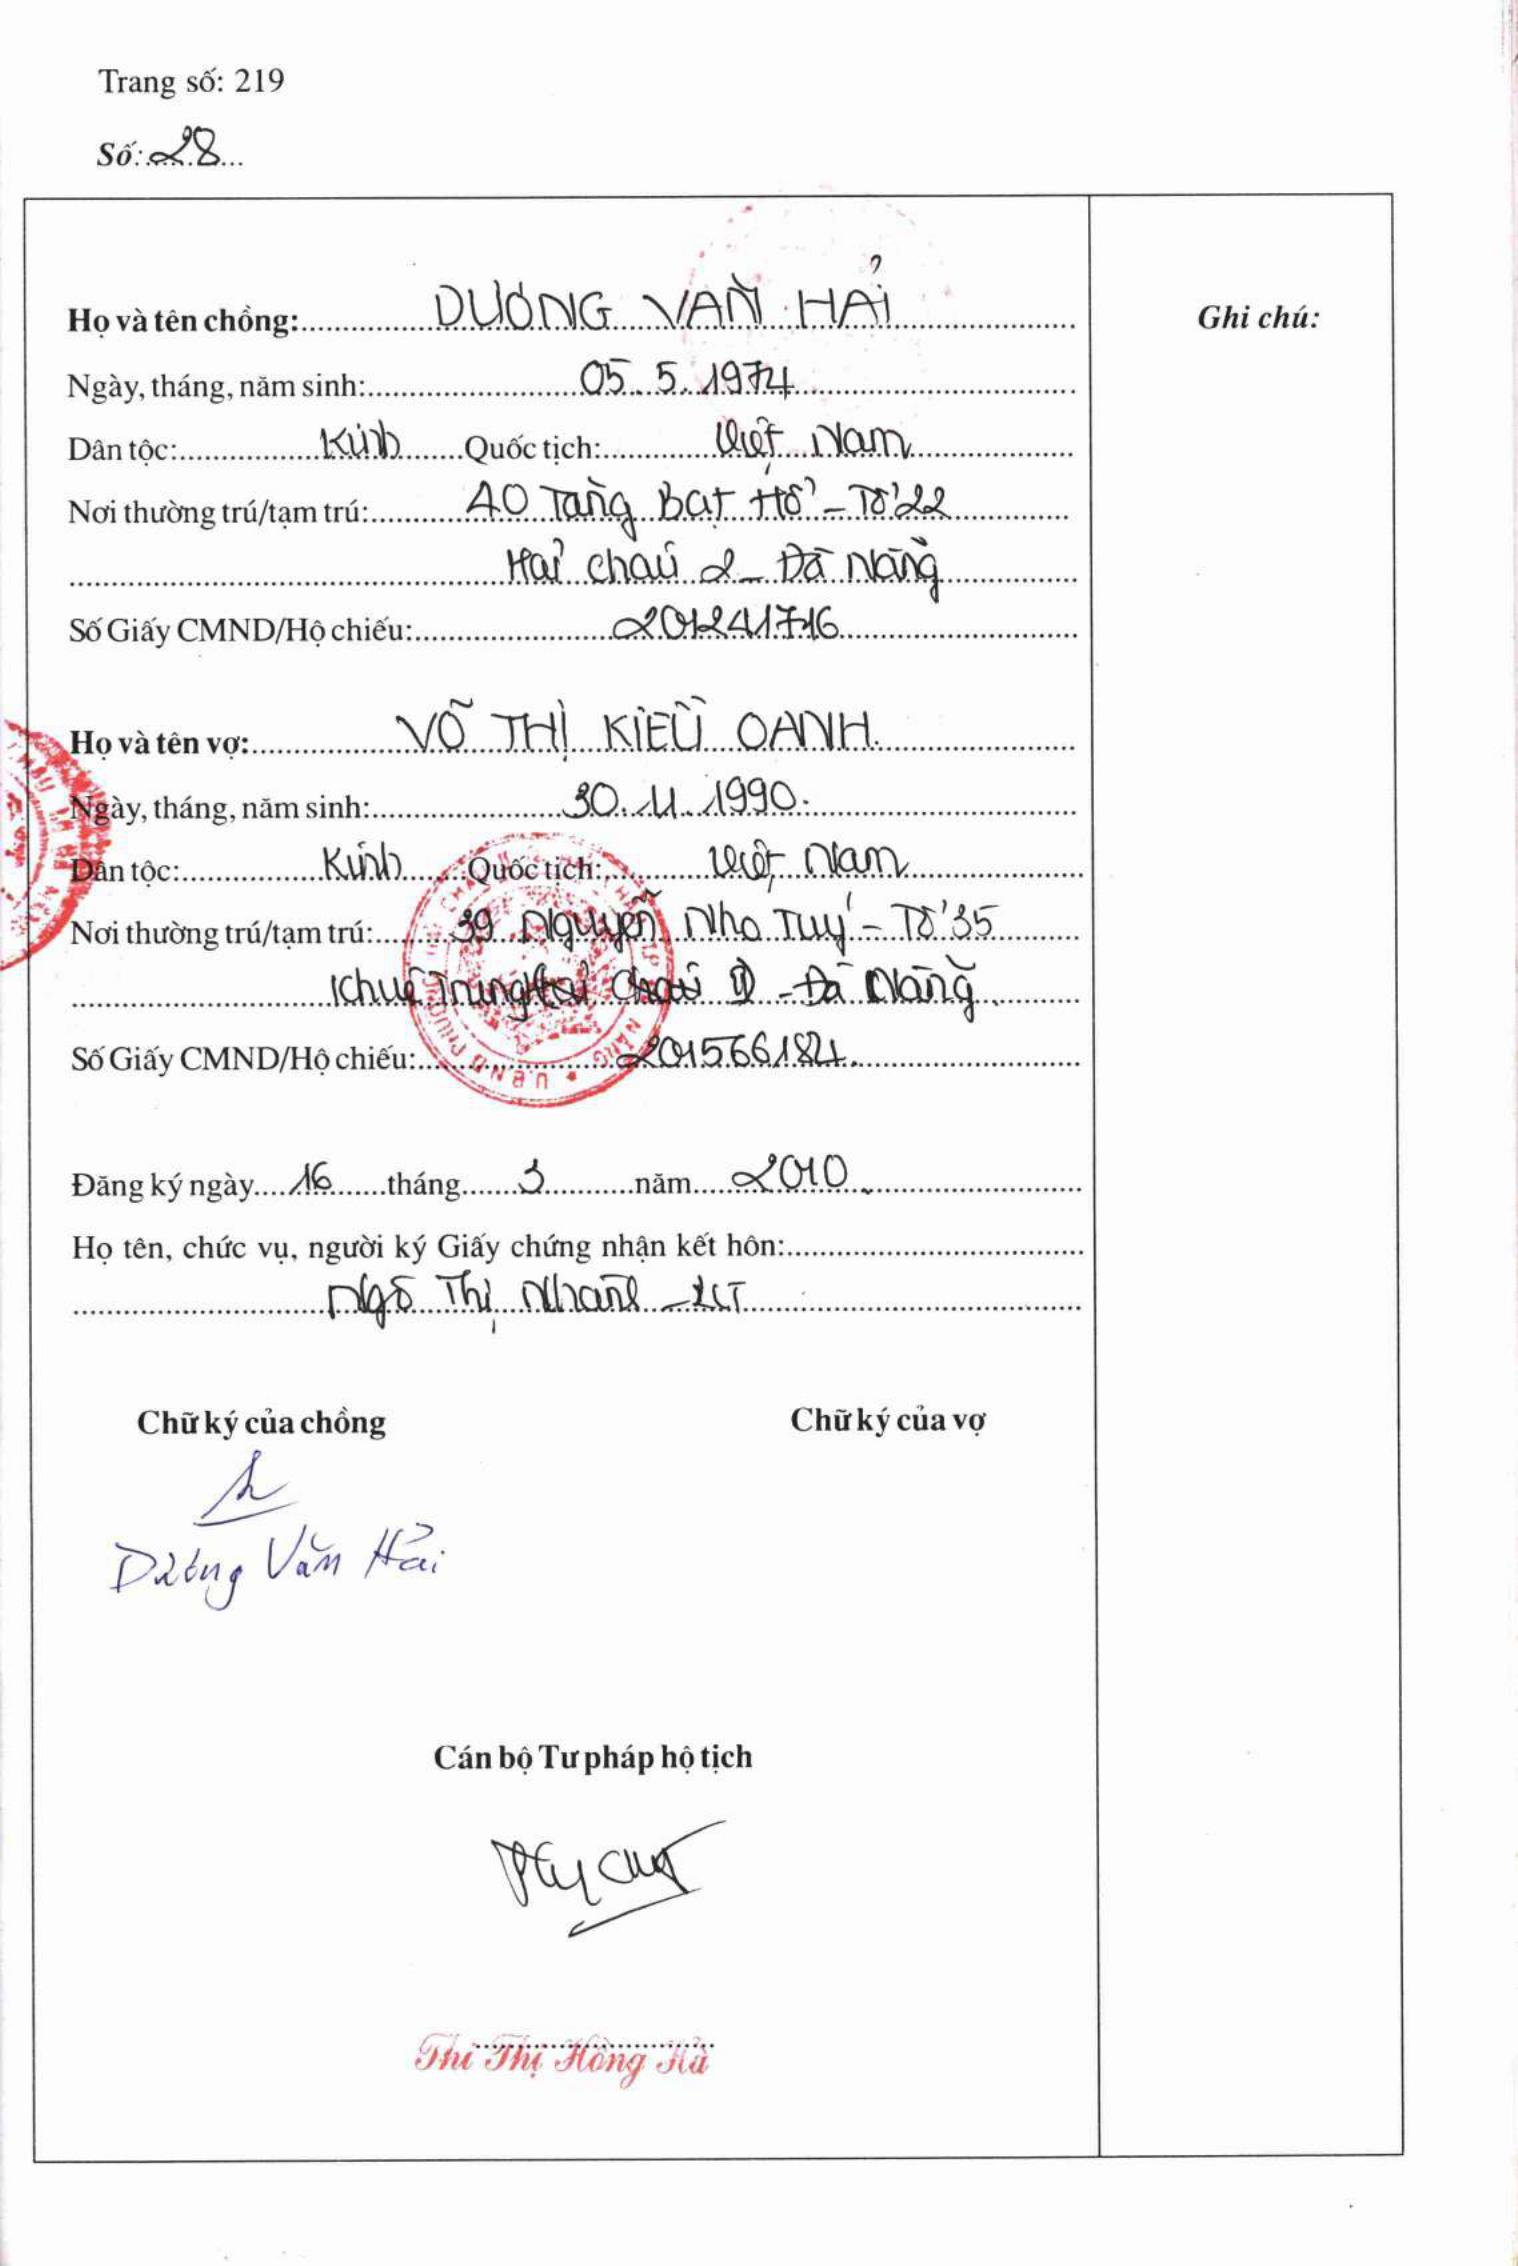 Trang số: 219
Số: 28
Họ và tên chồng: DƯƠNG VĂN HẢI
Ghi chú:
Ngày, tháng, năm sinh: 05.5.1974
Dân tộc: Kinh Quốc tịch: Việt Nam
Nơi thường trú/tạm trú: 40 Tăng Bạt Hổ - Tổ 22
Hải Châu 2 - Đà Nẵng
Số Giấy CMND/Hộ chiếu: 201241716
Họ và tên vợ: VÕ THỊ KIỀU OANH
Ngày, tháng, năm sinh: 30.11.1990.
Dân tộc: Kinh Quốc tịch: Việt Nam
Nơi thường trú/tạm trú: 39 Nguyễn Nho Tuý - Tổ 35
Khuê Trung - Đà Nẵng.
Số Giấy CMND/Hộ chiếu: 201566184.
Đăng ký ngày 16 tháng 3 năm 2010.
Họ tên, chức vụ, người ký Giấy chứng nhận kết hôn:
Ngô Thị Nhạn
Chữ ký của chồng
Chữ ký của vợ
Dương Văn Hải
Cán bộ Tư pháp hộ tịch
Thi Thị Hồng Hà